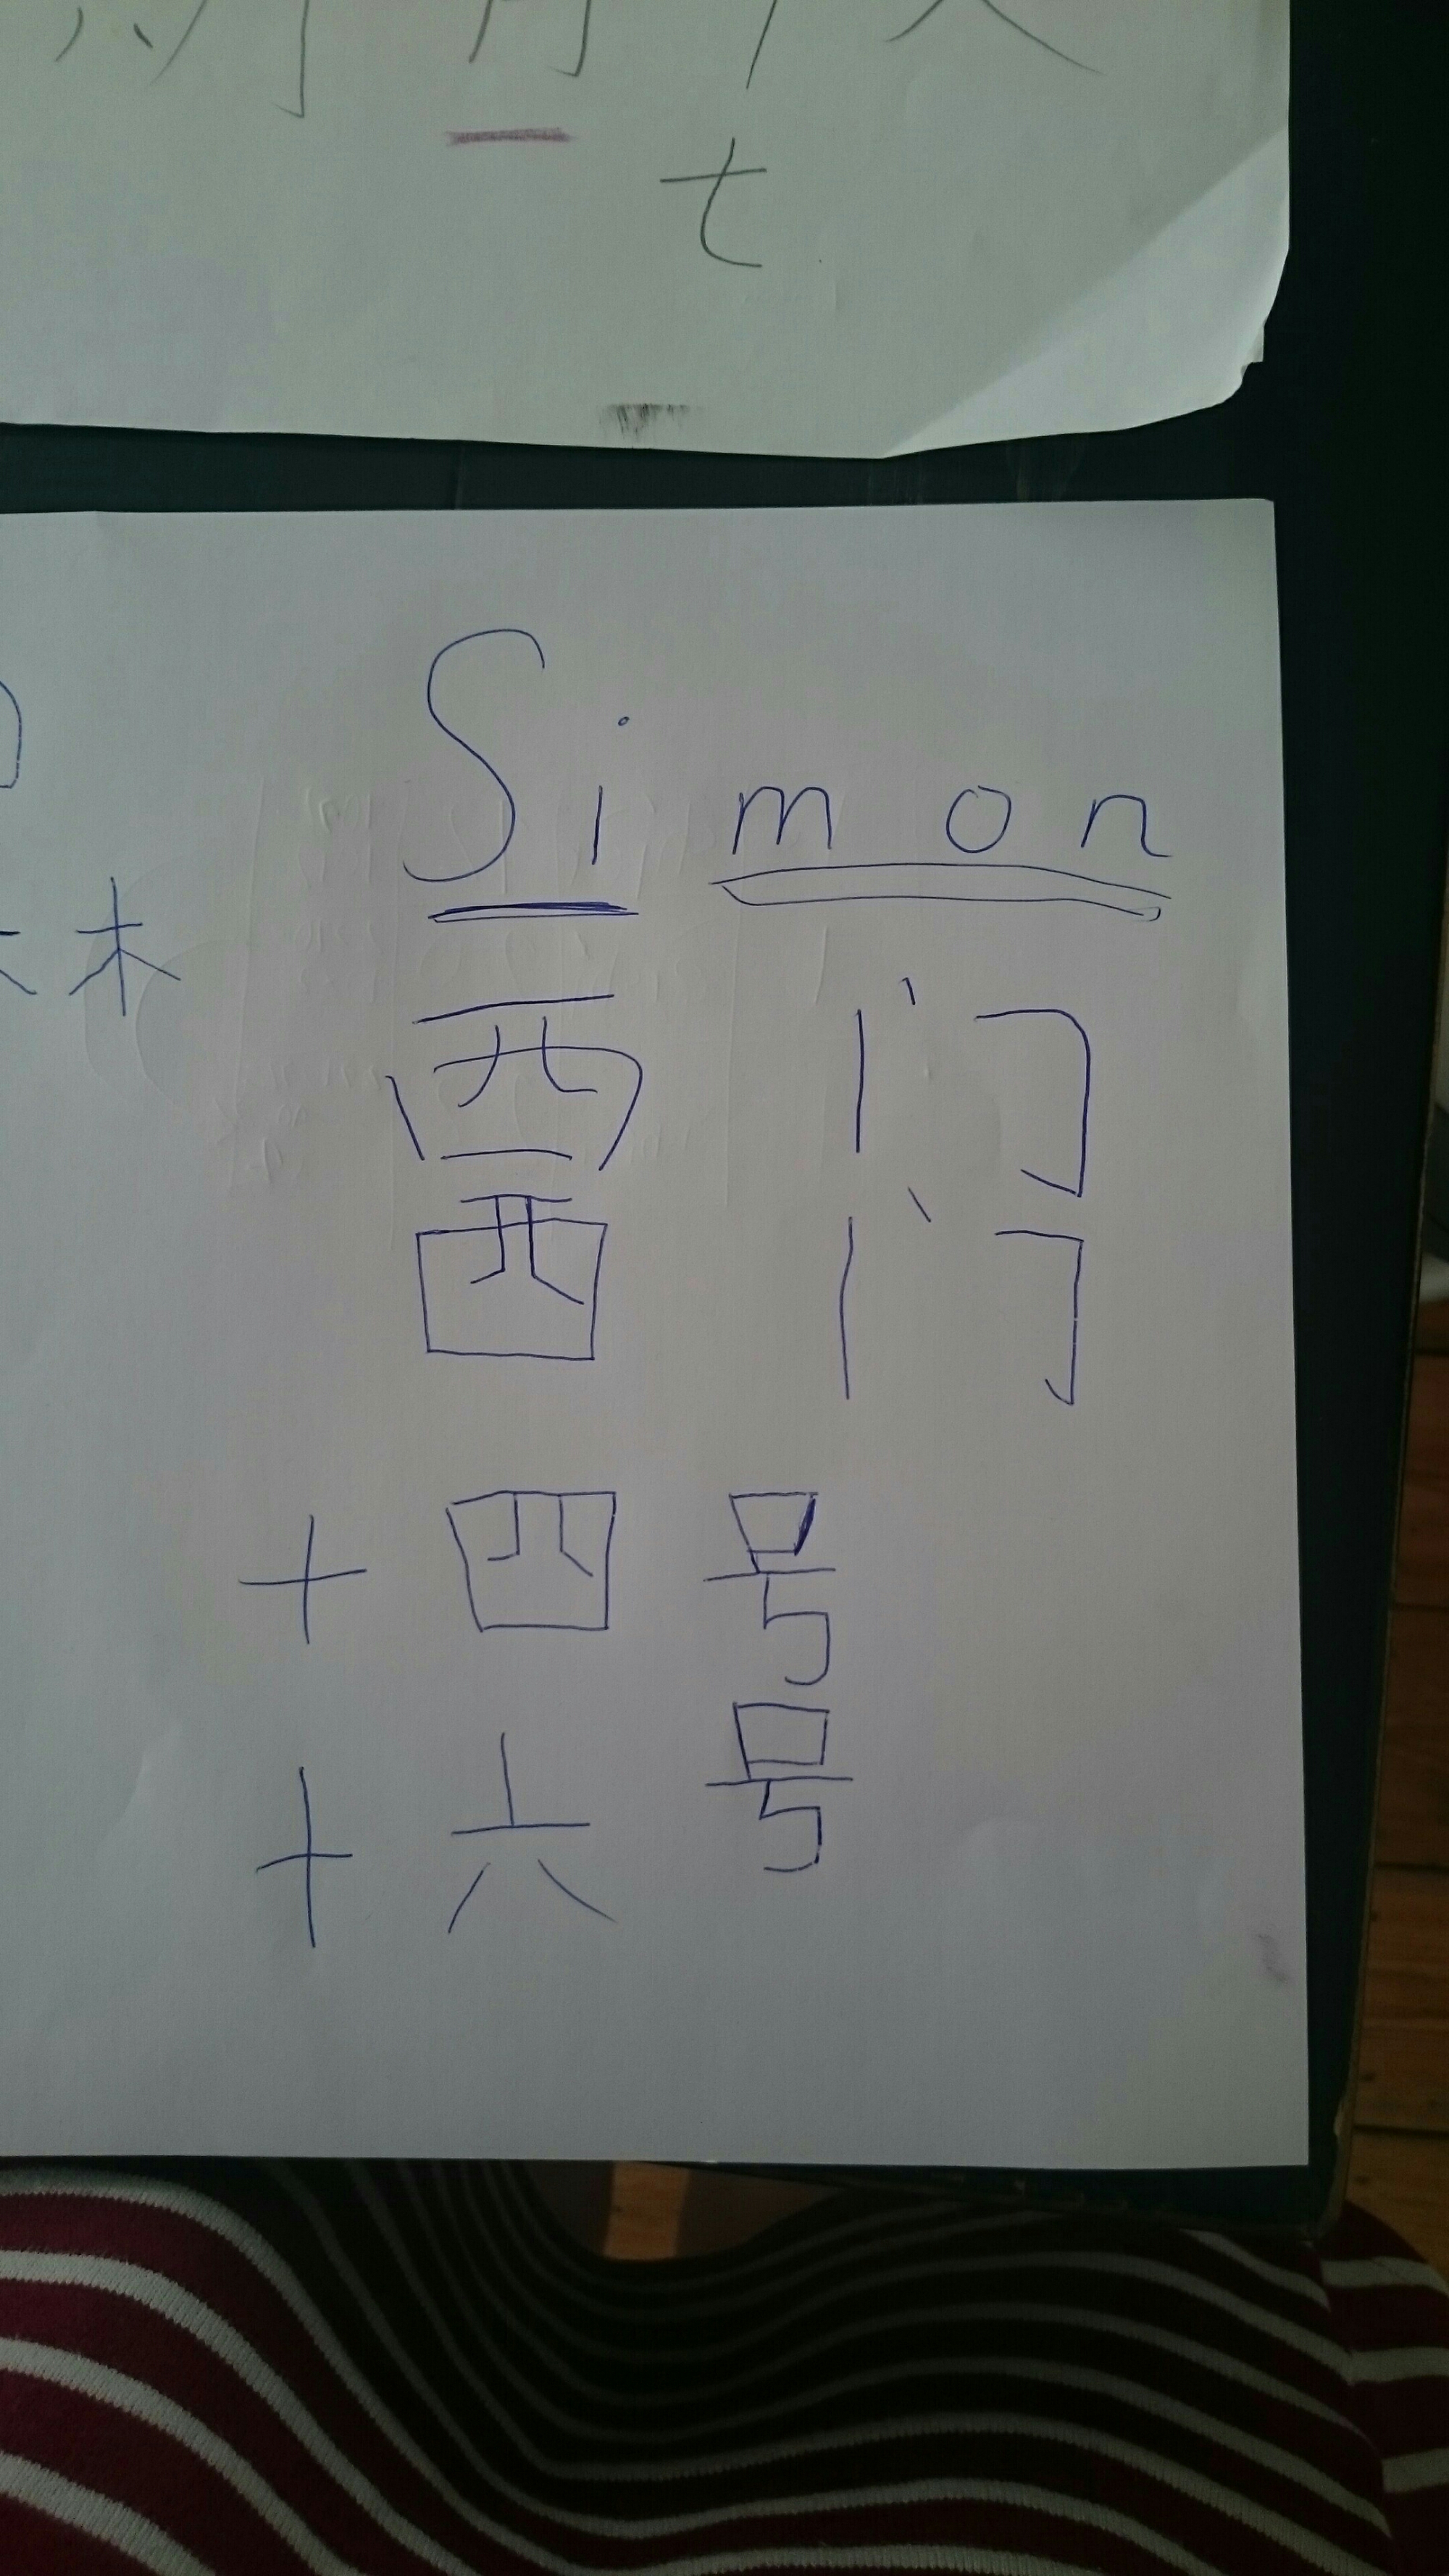 七
Simon
木
西门
西门
十四号
十六号